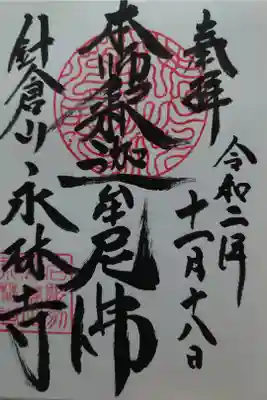 奉拝
令和二年
十一月十八日
本師釈迦牟尼佛
針倉山永林寺